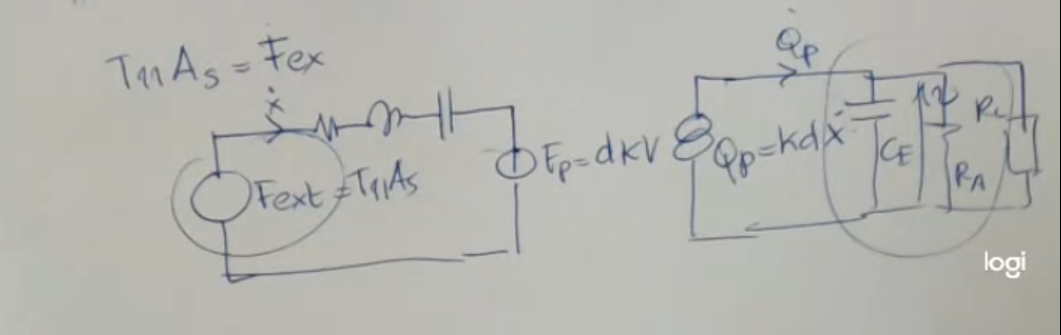 T11 As = Fex
ẋ
Fext = T11 As
Fp = dKV
Q̇p
Q̇p = Kdẋ
CE
RA
RL
logi